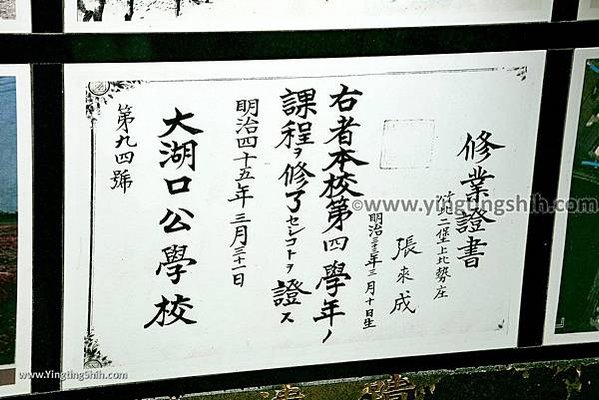 修業證書
竹北二堡上北勢庄
張來成
明治三十三年三月十日生
右者本校第四學年ノ
課程ヲ修了セシコトヲ證ス
明治四十五年三月三十一日
大湖口公學校
第九四號
©www.yingtingshih.com
© www.YingtingShih.com